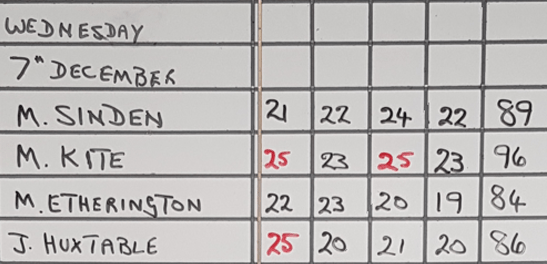 WEDNESDAY
7th DECEMBER
M. SINDEN 21 22 24 22 89
M. KITE 25 23 25 23 96
M. ETHERINGTON 22 23 20 19 84
J. HUXTABLE 25 20 21 20 86